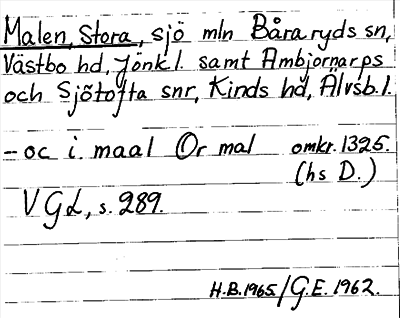 Malen, Stora, sjö mln Båraryds sn,
Västbo hd, Jönk l. samt Ambjörnarps
och Sjötofta snr, Kinds hd, Älvsb. l.
– oc i. maal Or mal omkr. 1325.
(hs D.)
VGL, s. 289.
H.B. 1965/G.E. 1962.